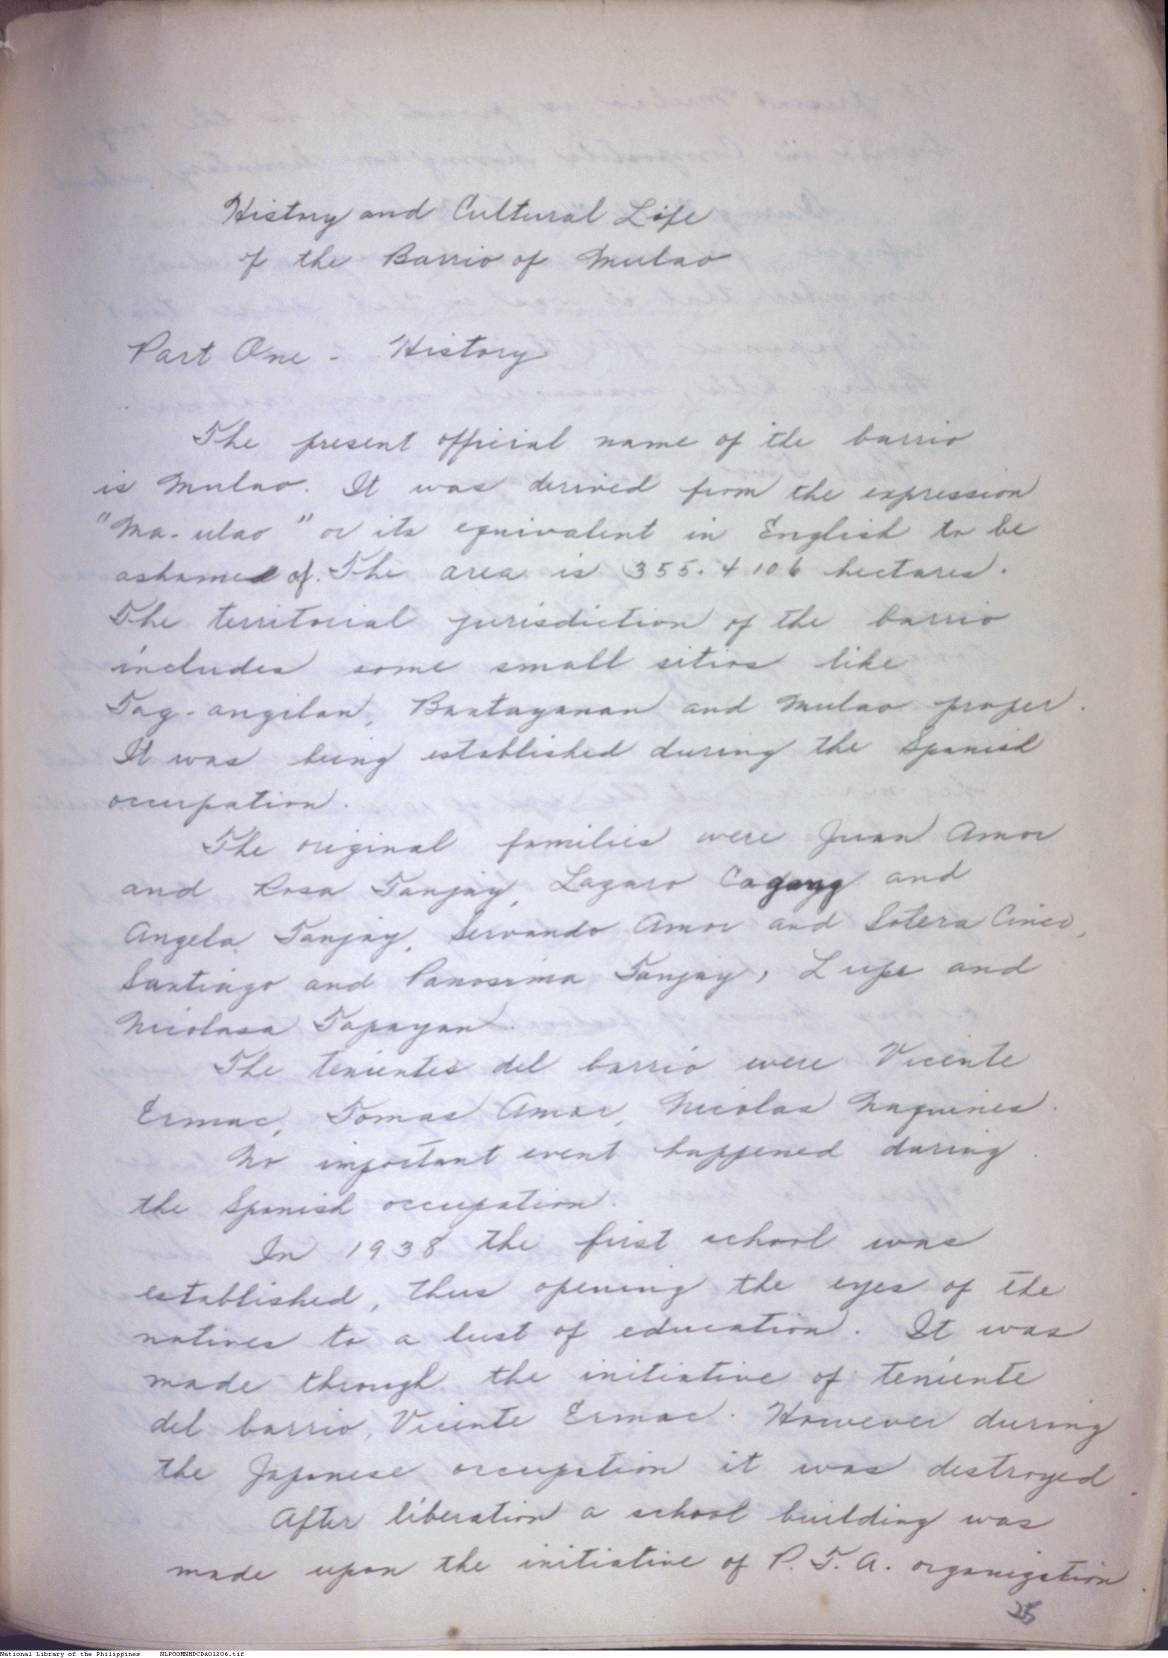 History and Cultural Life
of the Barrio of Mulao
Part One - History
The present official name of the barrio
is Mulao. It was derived from the expression
"Ma-ulao" or its equivalent in English to be
ashamed of. The area is 355.4106 hectares.
The territorial jurisdiction of the barrio
includes some small sitios like
Tag-angilan, Bantayanan and Mulao proper.
It was being established during the Spanish
occupation.
The original families were Juan Amor
and Rosa Tanjay, Lazaro Cagang and
Angela Tanjay, Servando Amor and Sotera Cinco,
Santiago and Tanjay, Lupe and
Nicolasa Tapayan.
The tenientes del barrio were Vicente
Ermac, Tomas Amor, Nicolas
No important event happened during
the Spanish occupation.
In 1938 the first school was
established, thus opening the eyes of the
natives to a lust of education. It was
made through the initiative of teniente
del barrio, Vicente Ermac. However during
the Japanese occupation it was destroyed.
After liberation a school building was
made upon the initiative of P.T.A. organization
25
National Library of the Philippines NLPOOMNHDCDA01206.tif